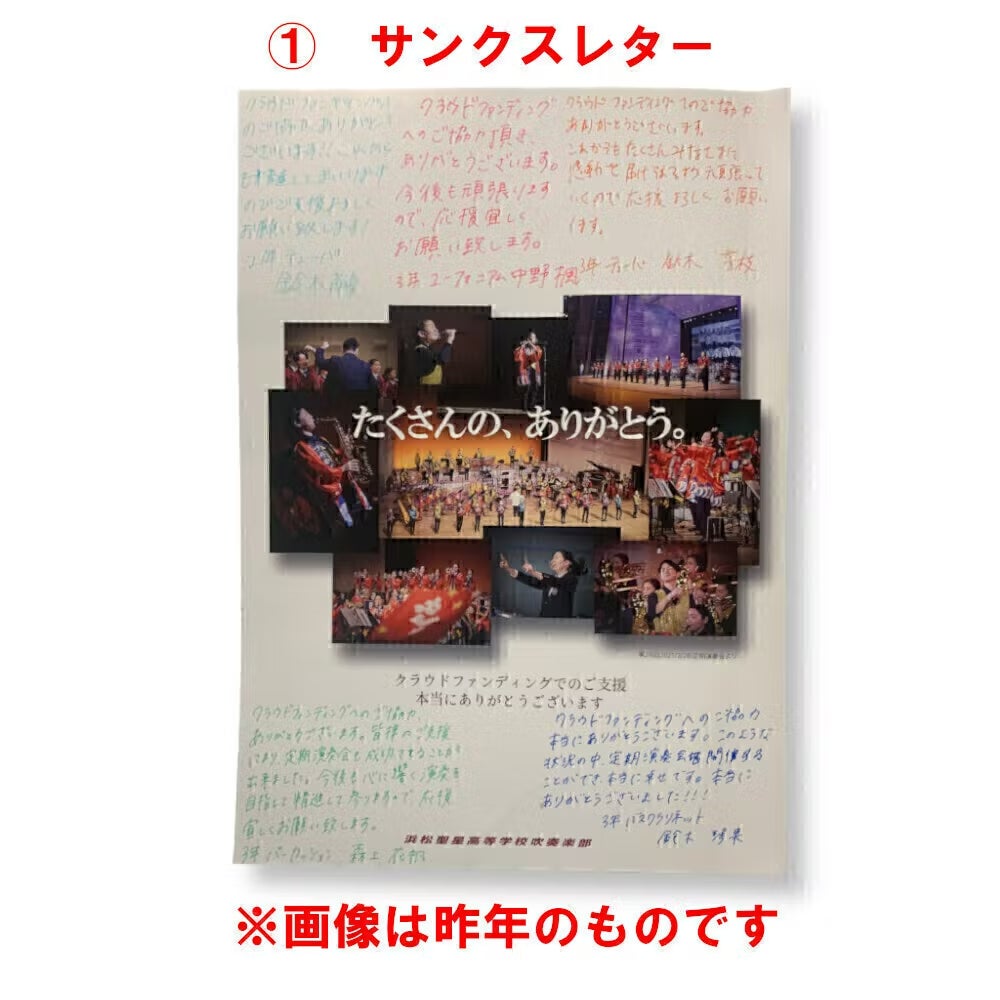 ① サンクスレター
クラウドファンディング
のご協力、ありがとう
ございます!!これから
も精進してまいります
のでご支援よろしく
お願い致します!
チューバ
鈴木
クラウドファンディング
へのご協力頂き、
ありがとうございます。
今後も頑張ります
ので、応援宜しく
お願い致します。
3年 ユーフォニアム 中野 楓
クラウドファンディングでのご協力
ありがとうございます。
これからもたくさんみなさまに
感動を届けられるよう頑張って
いくので応援よろしくお願い
します。
3年 鈴木
たくさんの、ありがとう。
クラウドファンディングでのご支援
本当にありがとうございます
クラウドファンディングへのご協力、
ありがとうございます。皆様のご支援
により、定期演奏会を成功させることが
出来ました。今後も心に響く演奏を
目指して精進して参りますので、応援
宜しくお願い致します。
3年 パーカッション 森上
クラウドファンディングへのご協力
本当にありがとうございます。このような
状況の中、定期演奏会を開催する
ことができ、本当に幸せです。本当に
ありがとうございました!!!
3年 バスクラリネット
鈴木
浜松聖星高等学校吹奏楽部
※画像は昨年のものです